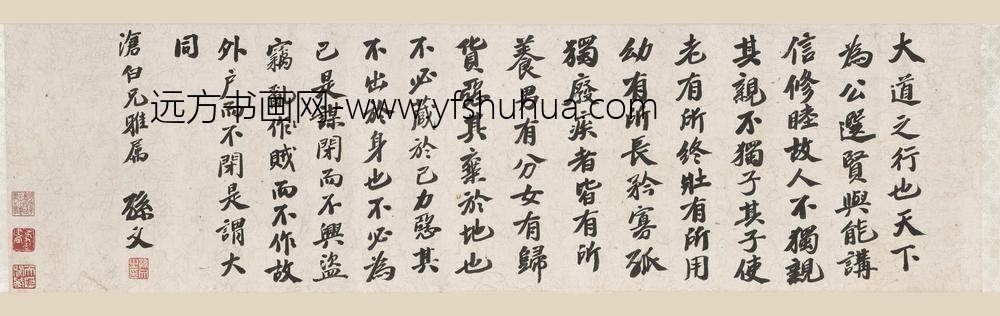 大道之行也天下
為公選賢與能講
信修睦故人不獨親
其親不獨子其子使
老有所終壯有所用
幼有所長矜寡孤
獨廢疾者皆有所
養男有分女有歸
貨惡其棄於地也
不必藏於己力惡其
不出於身也不必為
己是謀閉而不興盜
竊亂作賊而不作故
外戶而不閉是謂大
同
滄白兄雅属 孫文
远方书画网-www.yfshuhua.com